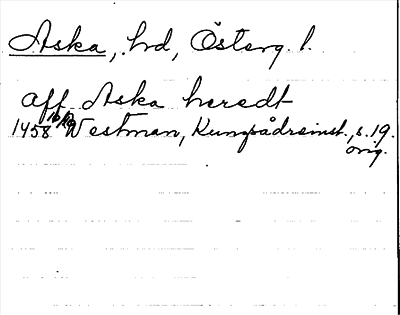 Aska, hd, Österg. l.
aff Aska heredt
1458 16/10 Westman, Kungsådreinst., s. 19.
orig.